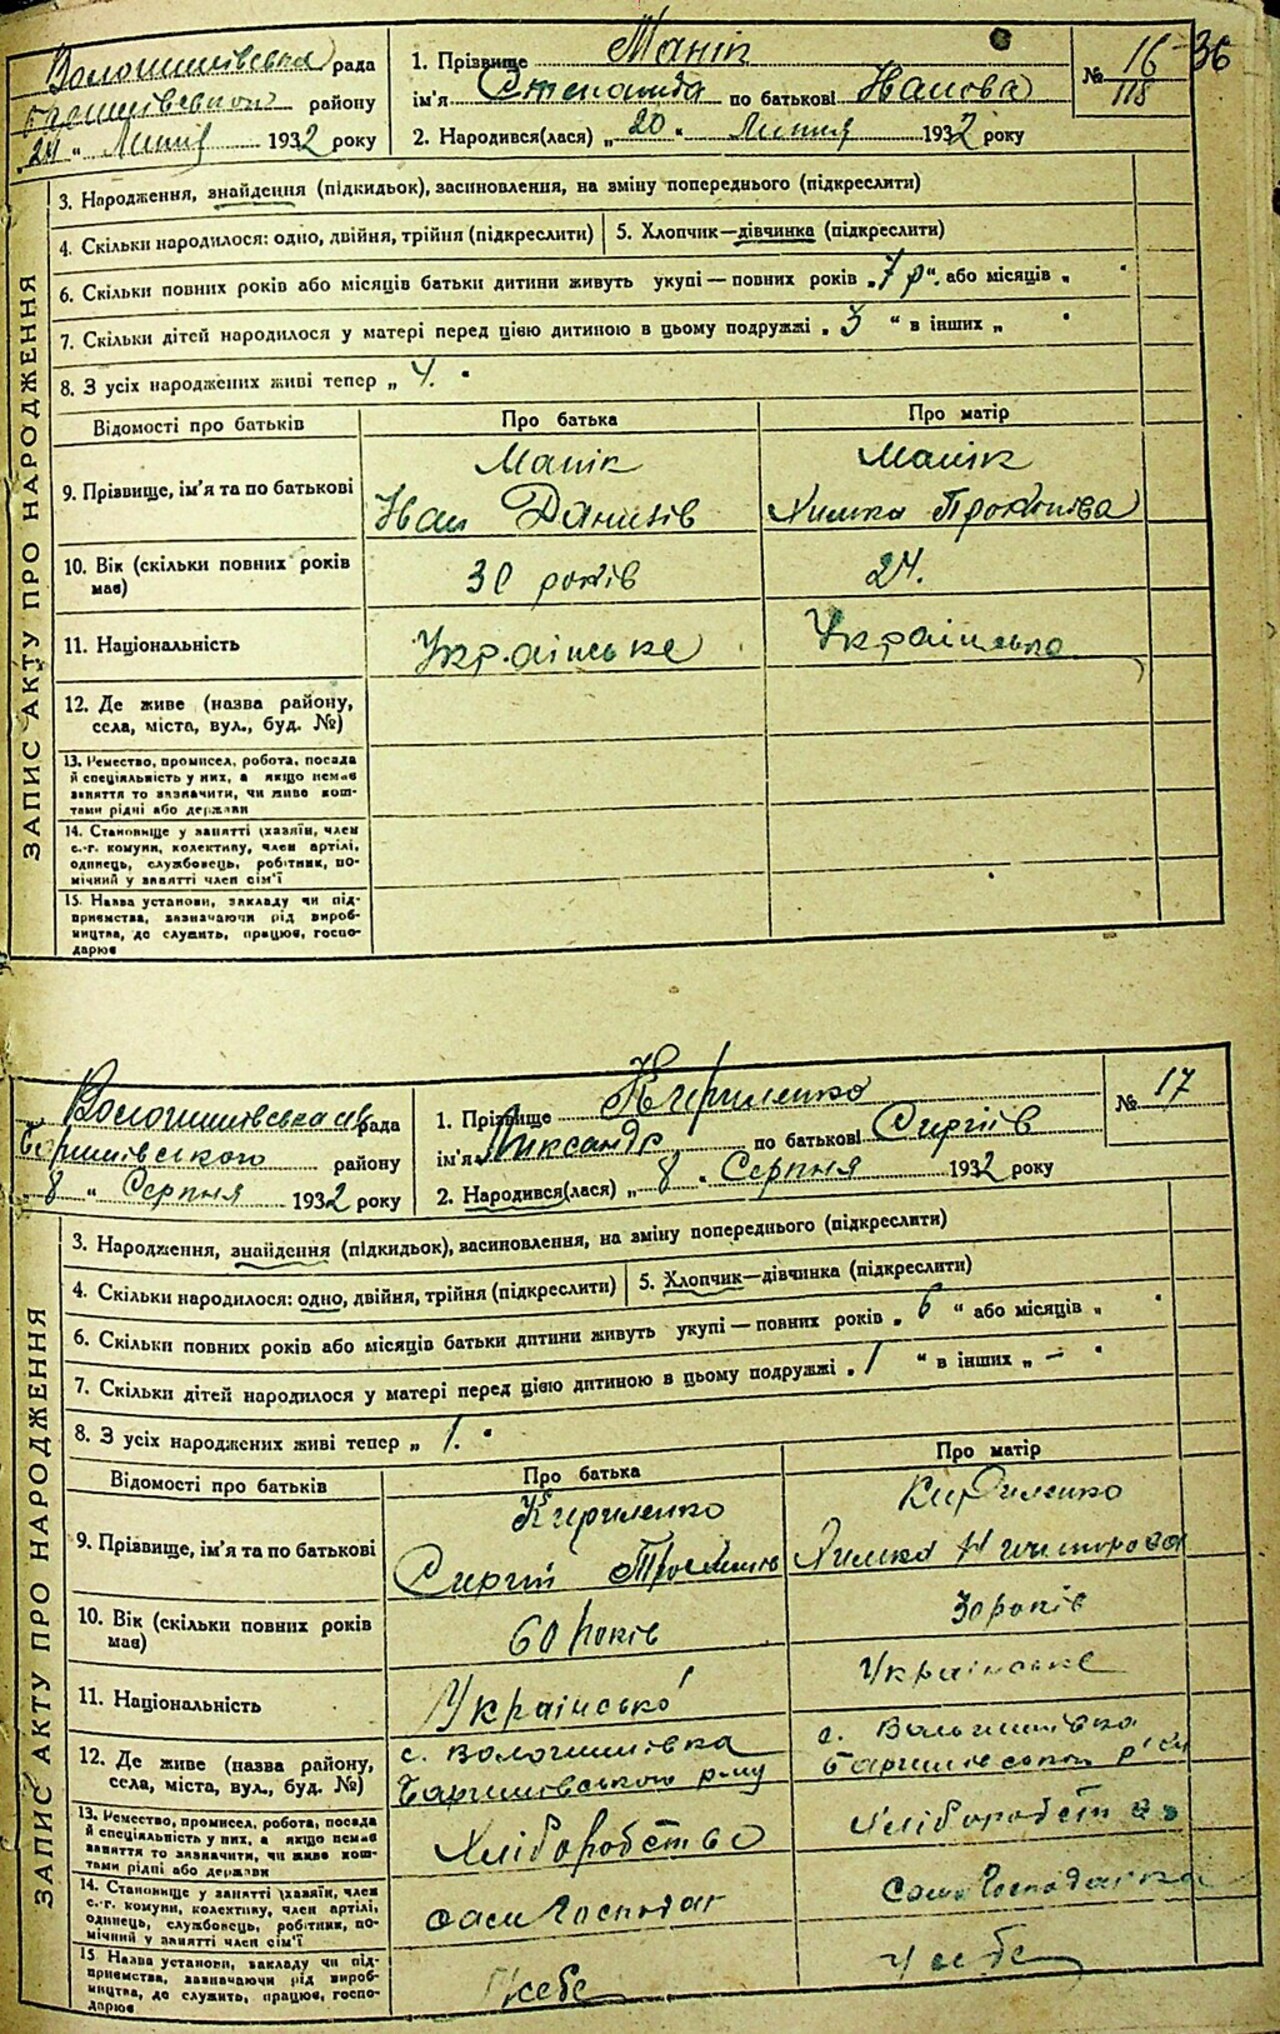 Волошинівська рада
району
"24" Липня 1932 року
1. Прізвище Манік
ім'я Степанида по батькові Іванова
2. Народився(лася) „20" Липня 1932 року
№ 16
118
36
ЗАПИС АКТУ ПРО НАРОДЖЕННЯ
3. Народження, знайдення (підкидьок), засиновлення, на зміну попереднього (підкреслити)
4. Скільки народилося: одно, двійня, трійня (підкреслити) 5. Хлопчик—дівчинка (підкреслити)
6. Скільки повних років або місяців батьки дитини живуть укупі — повних років „7 р". або місяців „ "
7. Скільки дітей народилося у матері перед цією дитиною в цьому подружжі „3" в інших „ "
8. З усіх народжених живі тепер „4."
Відомості про батьків Про батька Про матір
9. Прізвище, ім'я та по батькові
Манік Манік
Іван Данилів Химка Прокопіва
10. Вік (скільки повних років має) 30 років 24.
11. Національність Українське Українська
12. Де живе (назва району,
села, міста, вул., буд. №)
13. Ремество, промисел, робота, посада
й спеціяльність у них, а якщо немає
заняття то зазначити, чи живе кош-
тами рідні або держави
14. Становище у занятті (хазяїн, член
с.-г. комуни, колективу, член артілі,
одинець, службовець, робітник, по-
мічний у занятті член сім'ї
15. Назва установи, закладу чи під-
приємства, зазначаючи рід вироб-
ництва, де служить, працює, госпо-
дарює
Волошинівська рада
Баришівського району
„8" Серпня 1932 року
1. Прізвище Кириленко
ім'я Ликсандр по батькові Сиргіїв
2. Народився(лася) „8" Серпня 1932 року
№ 17
ЗАПИС АКТУ ПРО НАРОДЖЕННЯ
3. Народження, знайдення (підкидьок), засиновлення, на зміну попереднього (підкреслити)
4. Скільки народилося: одно, двійня, трійня (підкреслити) 5. Хлопчик—дівчинка (підкреслити)
6. Скільки повних років або місяців батьки дитини живуть укупі — повних років „6" або місяців „ "
7. Скільки дітей народилося у матері перед цією дитиною в цьому подружжі „1" в інших „—"
8. З усіх народжених живі тепер „1."
Відомості про батьків Про батька Про матір
9. Прізвище, ім'я та по батькові
Кириленко Кириленко
Сиргій Химка
10. Вік (скільки повних років має) 60 років 30 років
11. Національність Українсько Українське
12. Де живе (назва району,
села, міста, вул., буд. №)
с. Волошинівка с. Волошинівка
Баришівського р-ну Баришівського
13. Ремество, промисел, робота, посада
й спеціяльність у них, а якщо немає
заняття то зазначити, чи живе кош-
тами рідні або держави
Хліборобство Хліборобство
14. Становище у занятті (хазяїн, член
с.-г. комуни, колективу, член артілі,
одинець, службовець, робітник, по-
мічний у занятті член сім'ї
сам Господар сама Господарка
15. Назва установи, закладу чи під-
приємства, зазначаючи рід вироб-
ництва, де служить, працює, госпо-
дарює
У себе У себе